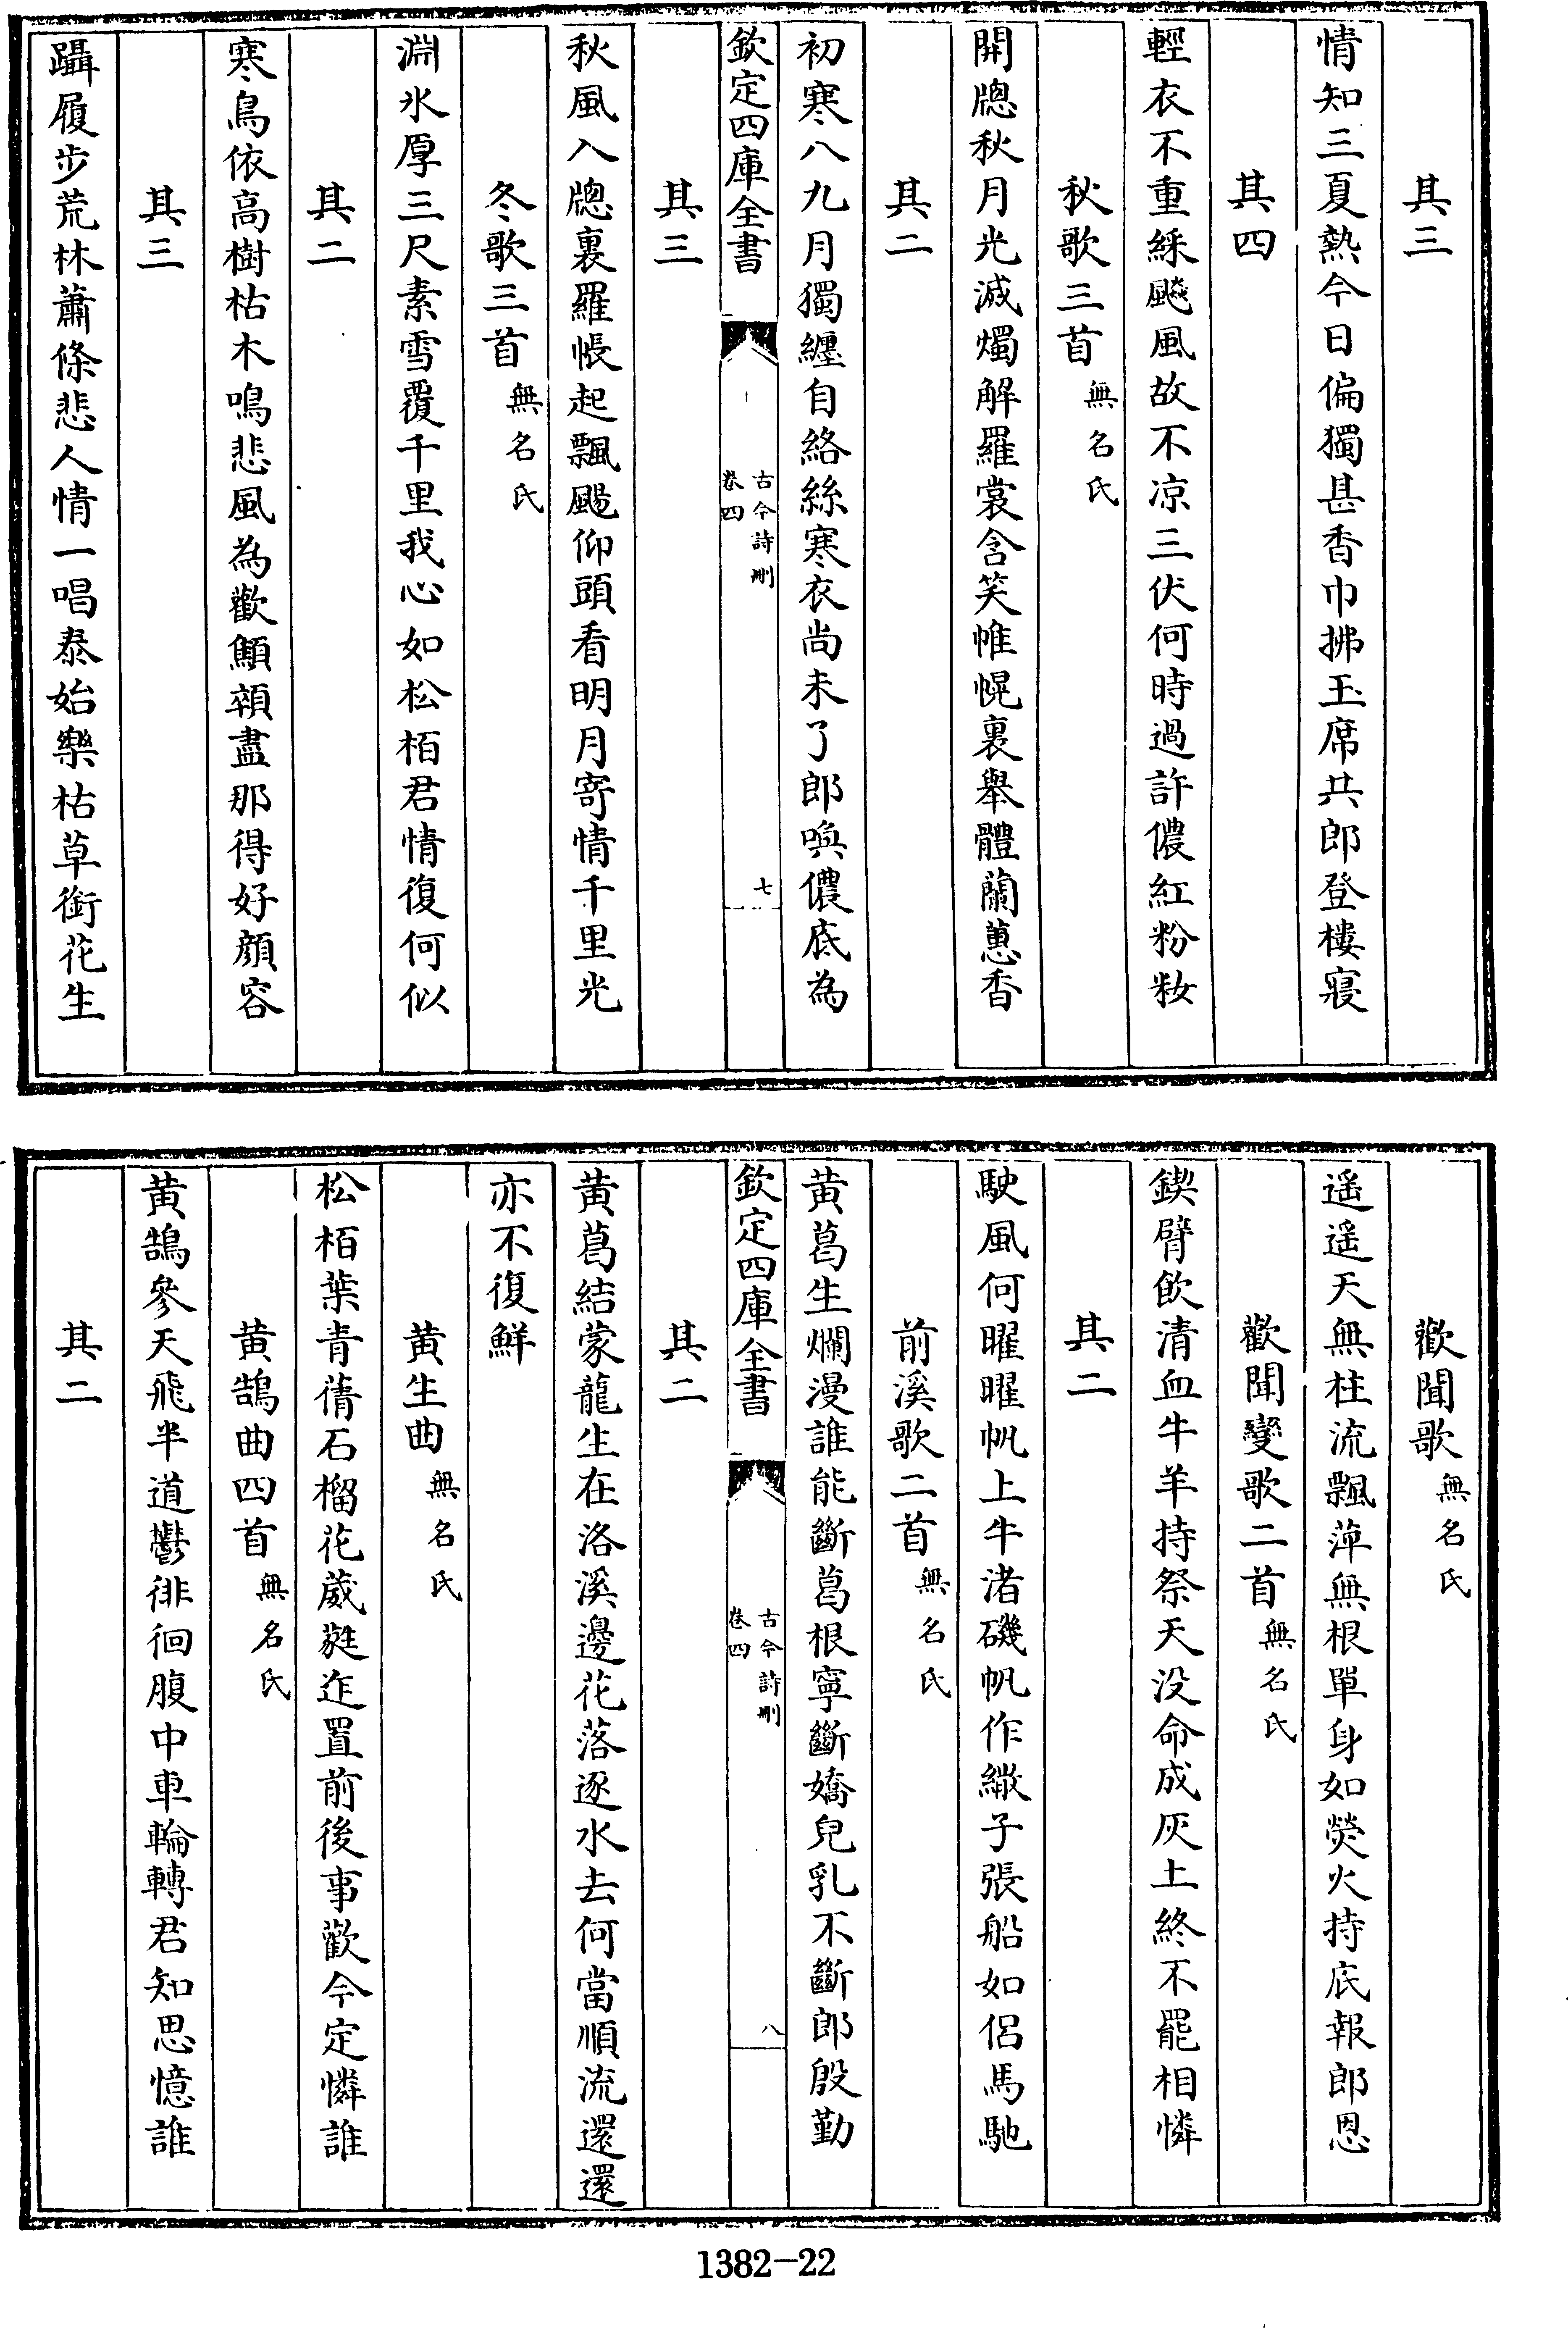 其三
情知三夏熱今日偏獨甚香巾拂玉席共郎登樓寢
其四
輕衣不重綵飈風故不凉三伏何時過許儂紅粉妝
秋歌三首無名氏
開牎秋月光滅燭解羅裳含笑帷幌裏舉體蘭蕙香
其二
初寒八九月獨纏自絡絲寒衣尚未了郎喚儂底為
欽定四庫全書
古今詩刪
卷四
七
其三
秋風入牎裏羅帳起飄颺仰頭看明月寄情千里光
冬歌三首無名氏
淵氷厚三尺素雪覆千里我心如松栢君情復何似
其二
寒鳥依高樹枯木鳴悲風為歡顦顇盡那得好顔容
其三
躡履步荒林蕭條悲人情一唱泰始樂枯草銜花生
歡聞歌無名氏
遥遥天無柱流飄萍無根單身如熒火持底報郎恩
歡聞變歌二首無名氏
鍥臂飲清血牛羊持祭天没命成灰土終不罷相憐
其二
駛風何曜曜帆上牛渚磯帆作繖子張船如侣馬馳
前溪歌二首無名氏
黄葛生爛漫誰能斷葛根寧斷嬌兒乳不斷郎殷勤
欽定四庫全書
古今詩刪
卷四
八
其二
黄葛結蒙龍生在洛溪邊花落逐水去何當順流還還
亦不復鮮
黄生曲無名氏
松栢葉青蒨石榴花葳蕤迮置前後事歡今定憐誰
黄鵠曲四首無名氏
黄鵠參天飛半道鬱徘徊腹中車輪轉君知思憶誰
其二
1382-22